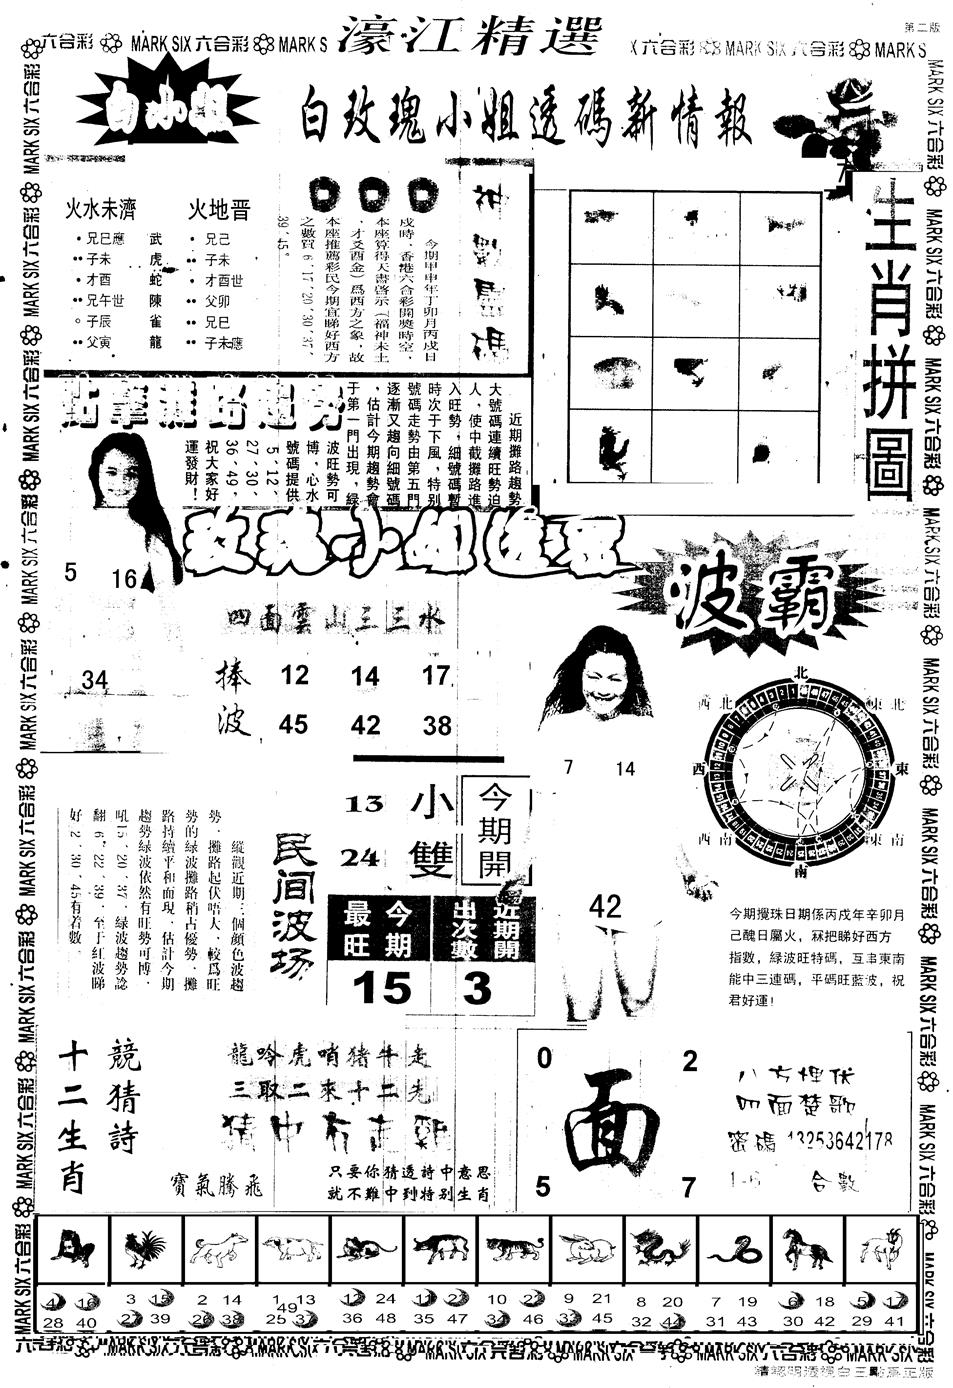 濠江精選
第二版
六合彩 MARK SIX 六合彩 MARK S
X 六合彩 MARK SIX 六合彩 MARK S
白小姐
白玫瑰小姐透碼新情報
火水未濟
兄巳應 武
子未 虎
才酉 蛇
兄午世 陳
子辰 雀
父寅 龍
火地晋
兄己
子未
才酉世
父卯
兄巳
子未應
今期甲申年丁卯月丙戌日
戌時，香港六合彩開獎時空，
本座算得天書啓示（福神未土
，才爻酉金）爲西方之象，故
本座推薦彩民今期宜睇好西方
之數買 6 . 17 . 20 . 30 . 37 .
39 . 45。
生肖拼圖
近期攤路趨勢
大號碼連續旺勢迫
人、使中截攤路進
入旺勢；細號碼暫
時次于下風，特別
號碼走勢由第五門
逐漸又趨向細號碼
、估計今期趨勢會
于第一門出現，緑
波旺勢可
博，心水
號碼提供
5．12．
27．30．
36．49，
祝大家好
運發財！
5 16
34
四面雲山三三水
捧 12 14 17
波 45 42 38
波霸
7 14
42
北
西北 東北
西 東
西南 東南
南
今期攪珠日期係丙戌年辛卯月
己醜日屬火，冧把睇好西方
指數，緑波旺特碼，互串東南
能中三連碼，平碼旺藍波，祝
君好運！
縱觀近期三個顔色波趨
勢．攤路起伏唔大、較爲旺
勢的緑波攤路稍占優勢．攤
路持續平和而現．估計今期
趨勢緑波依然有旺勢可博．
吼15．20．37．緑波趨勢諗
翻 6．22．39．至于紅波睇
好 2．30．45有着數．
民间波场
13 小
24 雙
今期開
今期最旺
15
近期開出次數
3
十二生肖
競猜詩
龍吟虎哨猪牛走
三取二來十二先
猜中有
寶氣騰飛
只要你猜透詩中意思
就不難中到特别生肖
0 2
面
5 7
八方埋伏
四面楚歌
密碼 13253642178
1-6 合數
4 16
28 40
3 15
27 39
2 14
26 38
1 13
49
25 37
12 24
36 48
11 23
35 47
10 22
34 46
9 21
33 45
8 20
32 44
7 19
31 43
6 18
30 42
5 17
29 41
請認明透視白三點爲正版